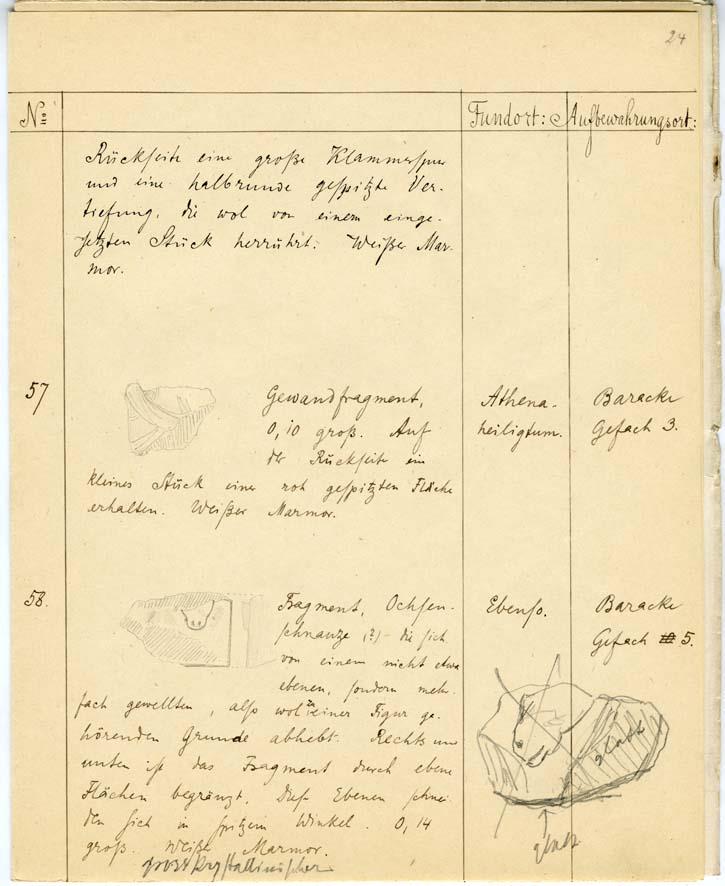 24
No
Fundort:
Aufbewahrungsort:
Rückseite eine große Klammerspur
und eine halbrunde gespitzte Ver-
tiefung, die wol von einem einge-
setzten Stück herrührt. Weißer Mar-
mor.
57
Gewandfragment,
0,10 groß. Auf
der Rückseite ein
kleines Stück einer roh gespitzten Fläche
erhalten. Weißer Marmor.
Athena-
heiligtum.
Baracke
Gefach 3.
58.
Fragment, Ochsen-
schnauze (?) – die sich
von einem nicht etwa
ebenen, sondern mehr-
fach gewellten, also wol zu einer Figur ge-
hörenden Grunde abhebt. Rechts und
unten ist das Fragment durch ebene
Flächen begränzt. Diese Ebenen schnei-
den sich in spitzem Winkel. 0,14
groß. Weißer Marmor.
grosskrystallinischer
Ebenso.
Baracke
Gefach 5.
glatt